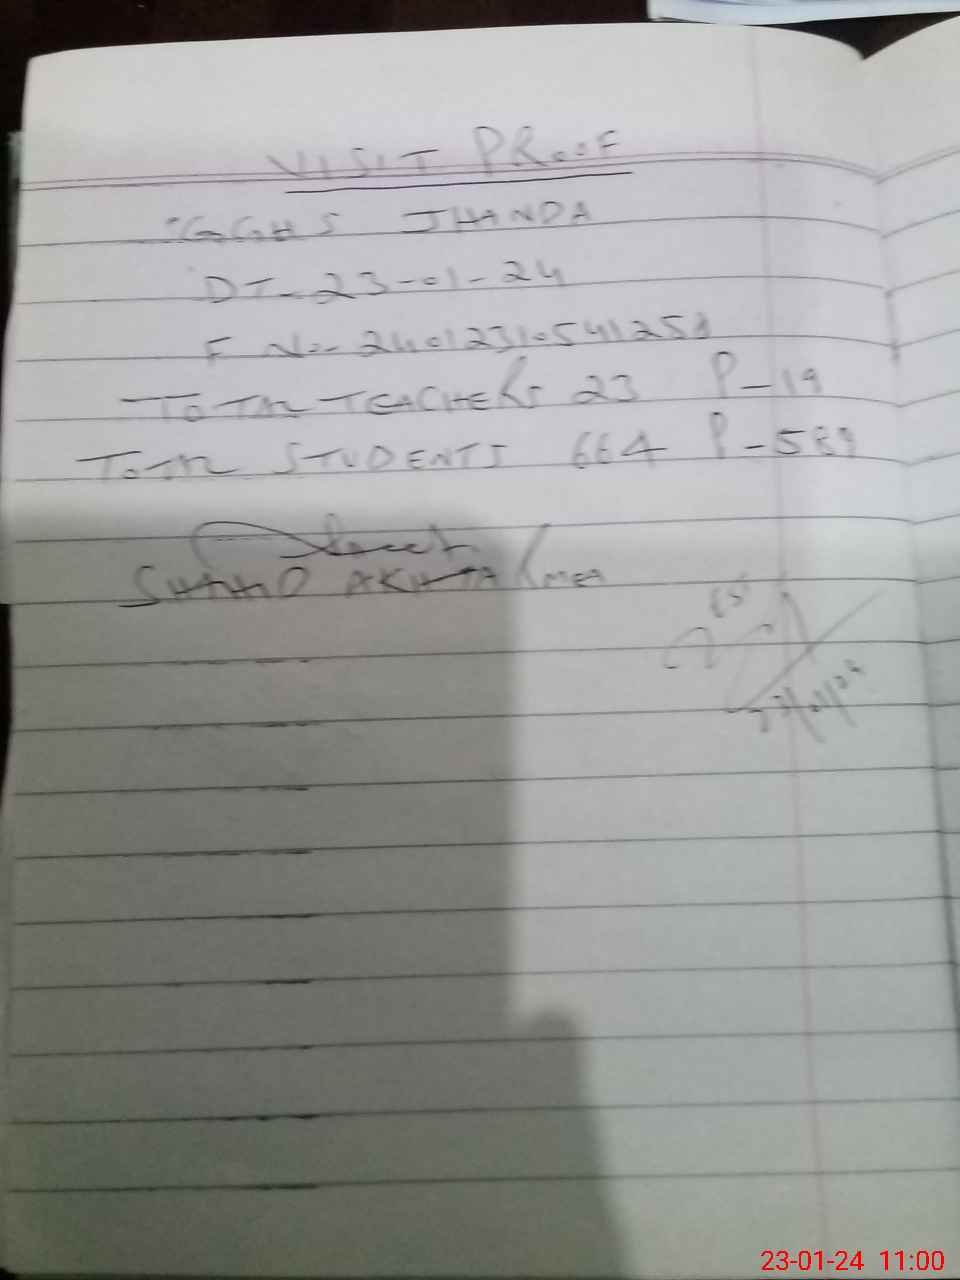 VISIT PROOF
GGHS JHANDA
DT- 23-01-24
F No- 240123105411258
TOTAL TEACHERS 23 P-19
TOTAL STUDENTS 664 P-589
SHAHID AKHTAR MEA
23/01/24
23-01-24 11:00